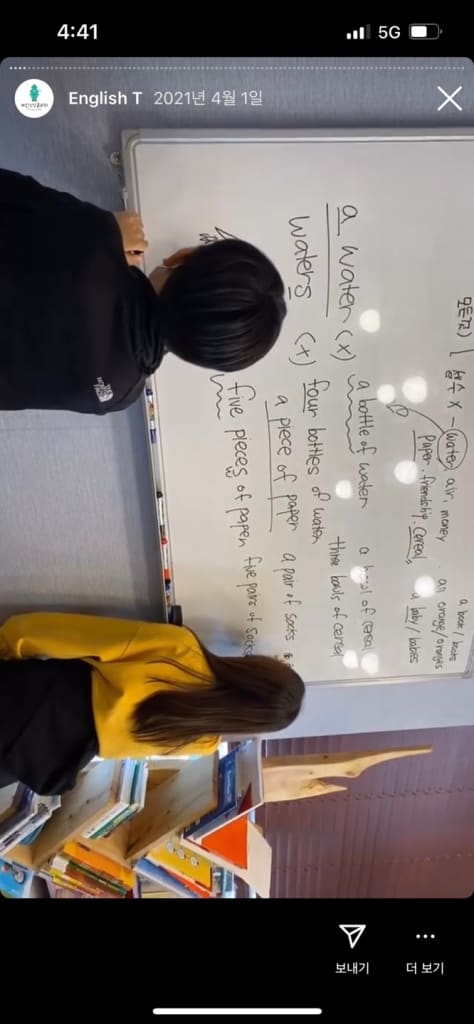 4:41
5G
English T 2021년 4월 1일
a book / books
셀수 X - water, air, money an orange/oranges
paper, friendship, cereal a baby/babies
a water (x) a bottle of water a bowl of cereal
waters (x) four bottles of water three bowls of cereal
a piece of paper a pair of socks
five pieces of paper five pairs of socks
보내기
더 보기